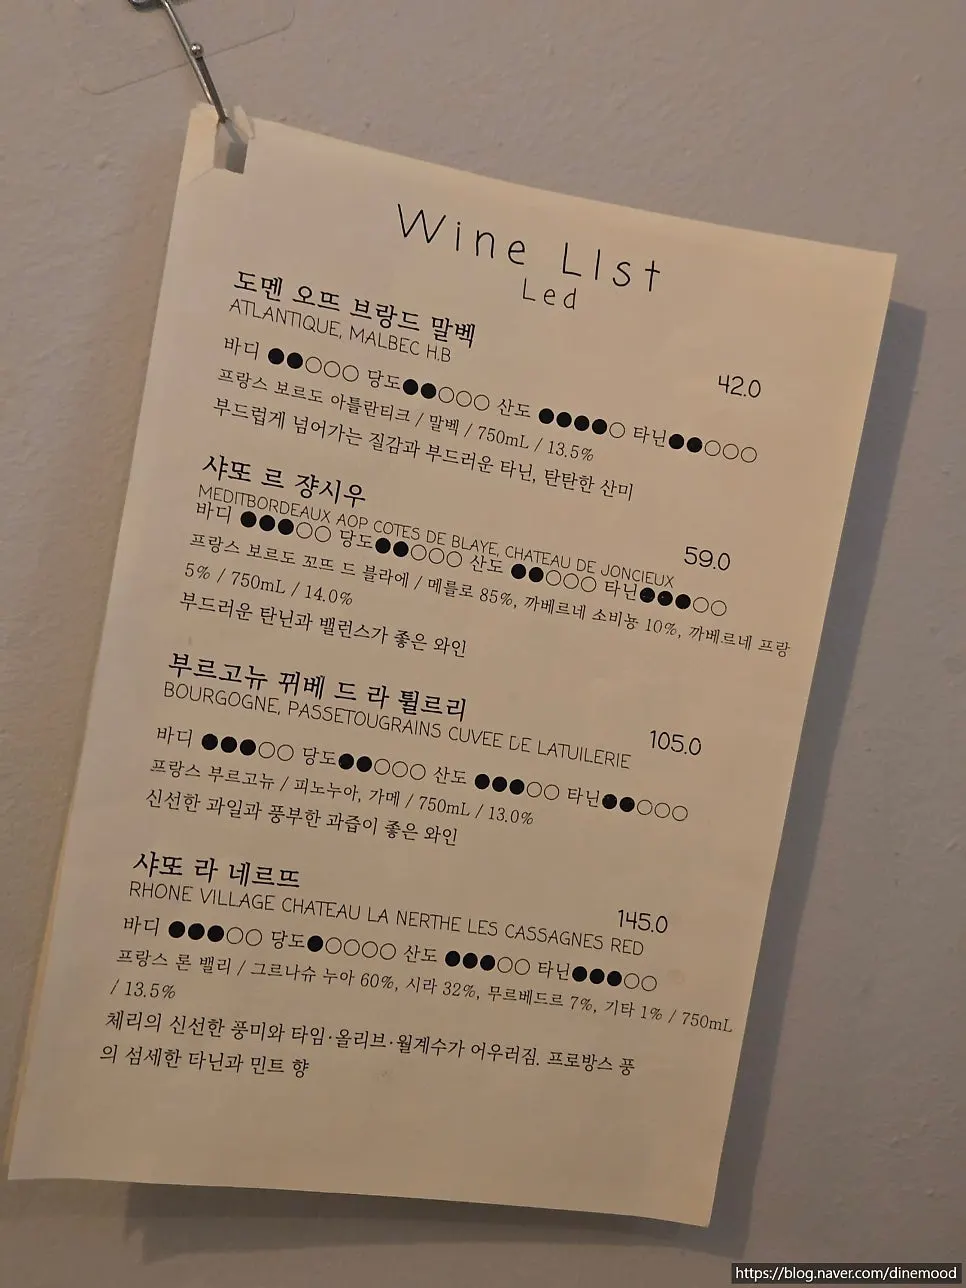 Wine LIst
Led
도멘 오뜨 브랑드 말벡
ATLANTIQUE, MALBEC H.B
42.0
바디 ●●○○○ 당도●●○○○ 산도 ●●●●○ 타닌●●○○○
프랑스 보르도 아틀란티크 / 말벡 / 750mL / 13.5%
부드럽게 넘어가는 질감과 부드러운 타닌, 탄탄한 산미
샤또 르 쟝시우
MEDITBORDEAUX AOP COTES DE BLAYE, CHATEAU DE JONCIEUX
59.0
바디 ●●●○○ 당도●●○○○ 산도 ●●○○○ 타닌●●●○○
프랑스 보르도 꼬뜨 드 블라에 / 메를로 85%, 까베르네 소비뇽 10%, 까베르네 프랑
5% / 750mL / 14.0%
부드러운 탄닌과 밸런스가 좋은 와인
부르고뉴 뀌베 드 라 튈르리
BOURGOGNE, PASSETOUGRAINS CUVEE DE LATUILERIE
105.0
바디 ●●●○○ 당도●●○○○ 산도 ●●●○○ 타닌●●○○○
프랑스 부르고뉴 / 피노누아, 가메 / 750mL / 13.0%
신선한 과일과 풍부한 과즙이 좋은 와인
샤또 라 네르뜨
RHONE VILLAGE CHATEAU LA NERTHE LES CASSAGNES RED
145.0
바디 ●●●○○ 당도●○○○○ 산도 ●●●○○ 타닌●●●○○
프랑스 론 밸리 / 그르나슈 누아 60%, 시라 32%, 무르베드르 7%, 기타 1% / 750mL
/ 13.5%
체리의 신선한 풍미와 타임·올리브·월계수가 어우러짐. 프로방스 풍
의 섬세한 타닌과 민트 향
https://blog.naver.com/dinemood